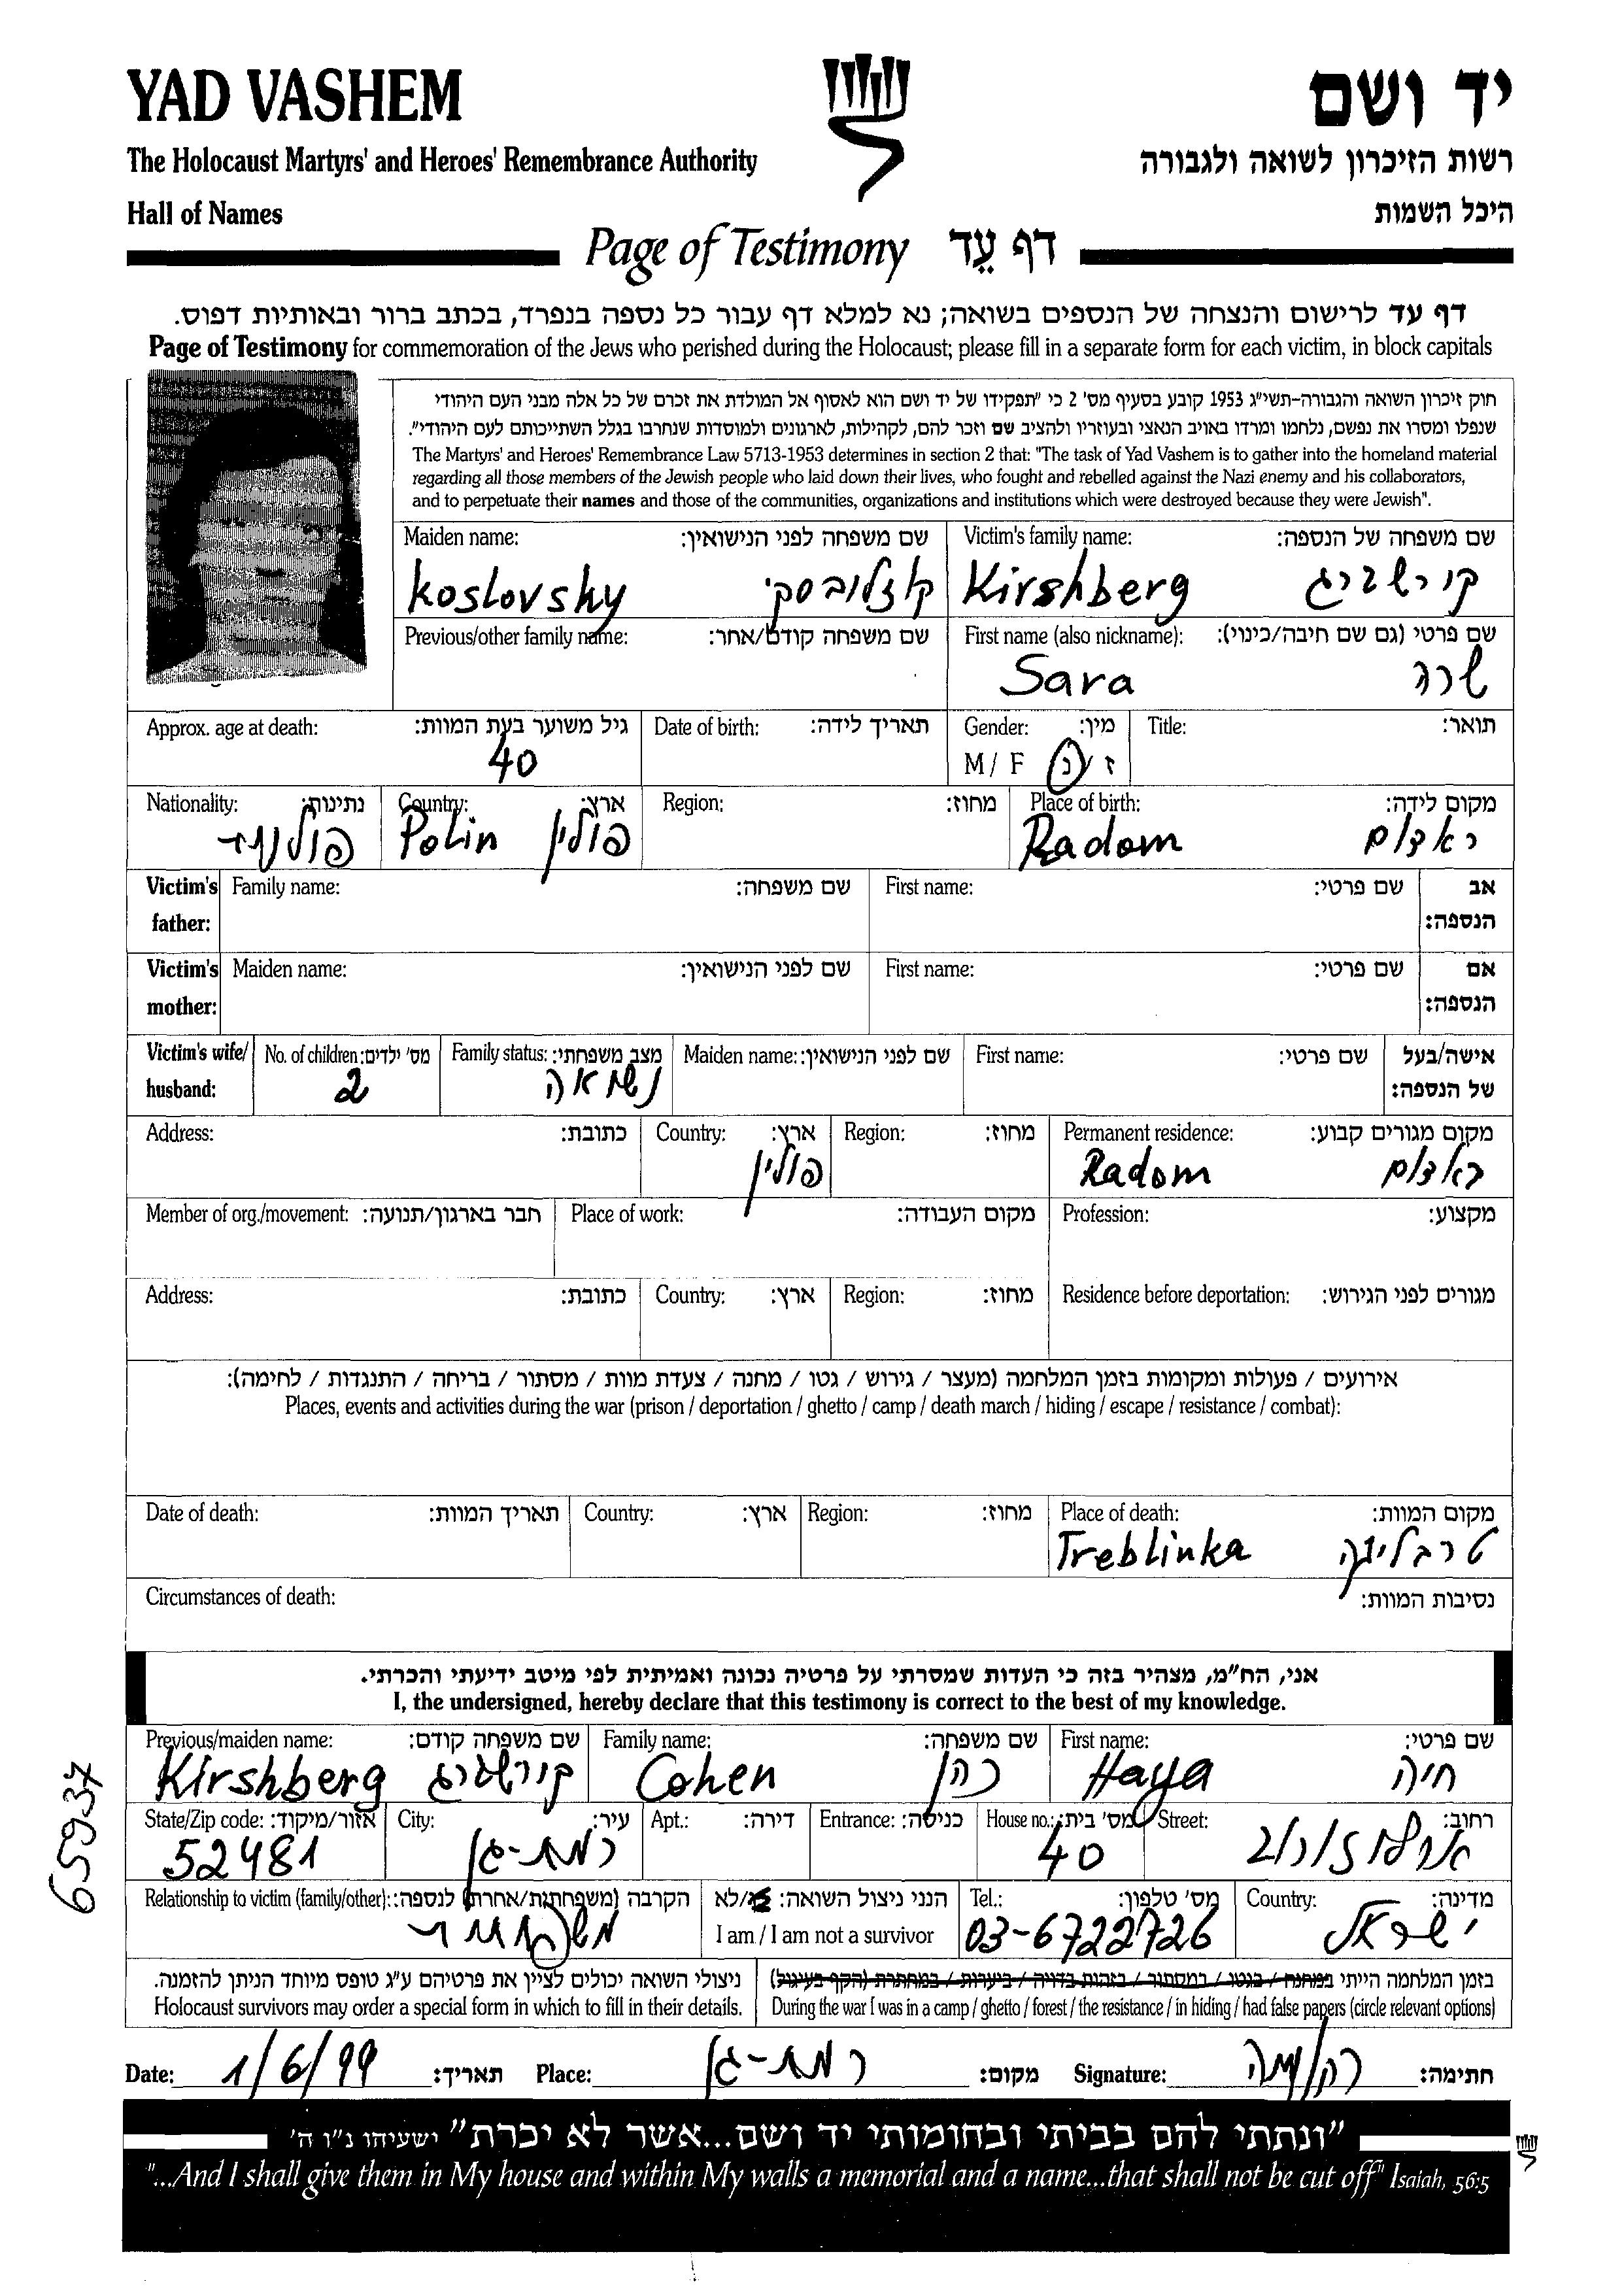 YAD VASHEM
יד ושם
The Holocaust Martyrs' and Heroes' Remembrance Authority
רשות הזיכרון לשואה ולגבורה
Hall of Names
היכל השמות
Page of Testimony דף עֵד
דף עד לרישום והנצחה של הנספים בשואה; נא למלא דף עבור כל נספה בנפרד, בכתב ברור ובאותיות דפוס.
Page of Testimony for commemoration of the Jews who perished during the Holocaust; please fill in a separate form for each victim, in block capitals
חוק זיכרון השואה והגבורה-תשי"ג 1953 קובע בסעיף מס' 2 כי "תפקידו של יד ושם הוא לאסוף אל המולדת את זכרם של כל אלה מבני העם היהודי
שנפלו ומסרו את נפשם, נלחמו ומרדו באויב הנאצי ובעוזריו ולהציב שם וזכר להם, לקהילות, לארגונים ולמוסדות שנחרבו בגלל השתייכותם לעם היהודי".
The Martyrs' and Heroes' Remembrance Law 5713-1953 determines in section 2 that: "The task of Yad Vashem is to gather into the homeland material
regarding all those members of the Jewish people who laid down their lives, who fought and rebelled against the Nazi enemy and his collaborators,
and to perpetuate their names and those of the communities, organizations and institutions which were destroyed because they were Jewish".
Maiden name: שם משפחה לפני הנישואין: Victim's family name: שם משפחה של הנספה:
Koslovsky קוזלובסקי Kirshberg קירשברג
Previous/other family name: שם משפחה קודם/אחר: First name (also nickname): שם פרטי (גם שם חיבה/כינוי):
Sara שרה
Approx. age at death: גיל משוער בעת המוות: Date of birth: תאריך לידה: Gender: מין: Title: תואר:
40 M / F ז / נ
Nationality: נתינות: Country: ארץ: Region: מחוז: Place of birth: מקום לידה:
Polin פולין Radom ראדום
Victim's father: Family name: שם משפחה: First name: שם פרטי: אב הנספה:
Victim's mother: Maiden name: שם לפני הנישואין: First name: שם פרטי: אם הנספה:
Victim's wife/ husband: No. of children: מס' ילדים: Family status: מצב משפחתי: Maiden name: שם לפני הנישואין: First name: שם פרטי: אישה/בעל של הנספה:
2 נשואה
Address: כתובת: Country: ארץ: Region: מחוז: Permanent residence: מקום מגורים קבוע:
פולין Radom ראדום
Member of org./movement: חבר בארגון/תנועה: Place of work: מקום העבודה: Profession: מקצוע:
Address: כתובת: Country: ארץ: Region: מחוז: Residence before deportation: מגורים לפני הגירוש:
אירועים / פעולות ומקומות בזמן המלחמה (מעצר / גירוש / גטו / מחנה / צעדת מוות / מסתור / בריחה / התנגדות / לחימה):
Places, events and activities during the war (prison / deportation / ghetto / camp / death march / hiding / escape / resistance / combat):
Date of death: תאריך המוות: Country: ארץ: Region: מחוז: Place of death: מקום המוות:
Treblinka טרבלינקה
Circumstances of death: נסיבות המוות:
אני, הח"מ, מצהיר בזה כי העדות שמסרתי על פרטיה נכונה ואמיתית לפי מיטב ידיעתי והכרתי.
I, the undersigned, hereby declare that this testimony is correct to the best of my knowledge.
Previous/maiden name: שם משפחה קודם: Family name: שם משפחה: First name: שם פרטי:
Kirshberg קירשברג Cohen כהן Haya חיה
State/Zip code: אזור/מיקוד: City: עיר: Apt.: דירה: Entrance: כניסה: House no.: מס' בית: Street: רחוב:
52481 רמת-גן 40
Relationship to victim (family/other): הקרבה (משפחתית/אחרת) לנספה: הנני ניצול השואה: כן/לא Tel.: מס' טלפון: Country: מדינה:
I am / I am not a survivor 03-6722726 ישראל
ניצולי השואה יכולים לציין את פרטיהם ע"ג טופס מיוחד הניתן להזמנה. בזמן המלחמה הייתי במחנה / בגטו / במסתור / בזהות בדויה / ביערות / במחתרת (הקף בעיגול)
Holocaust survivors may order a special form in which to fill in their details. During the war I was in a camp / ghetto / forest / the resistance / in hiding / had false papers (circle relevant options)
Date: 1/6/99 תאריך: Place: רמת-גן מקום: Signature: חתימה:
"ונתתי להם בביתי ובחומותי יד ושם...אשר לא יכרת" ישעיהו נ"ו ה'
"...And I shall give them in My house and within My walls a memorial and a name...that shall not be cut off" Isaiah, 56:5
65937